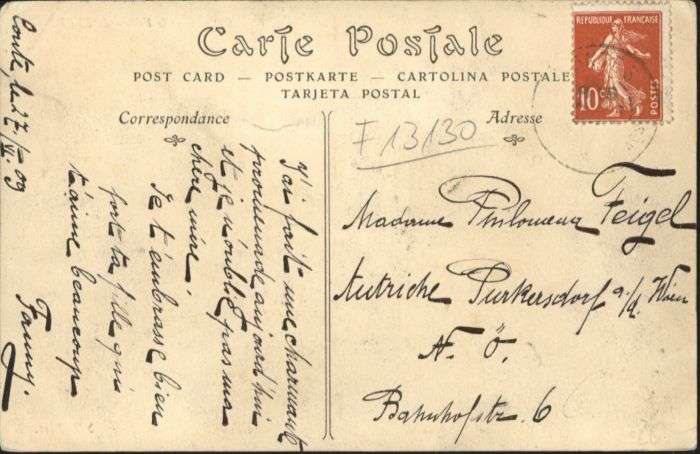 Carte Postale
POST CARD — POSTKARTE — CARTOLINA POSTALE
TARJETA POSTAL
Correspondance
Adresse
REPUBLIQUE FRANÇAISE
10c
POSTES
F 13130
le 27/VI. 09
J'ai fait une charmante
promenade aujourd'hui
et je n'oublie pas ma
chère mère
Je t'embrasse bien
forte ta fille qui
t'aime beaucoup
Fanny.
Madame Philomena Feigel
Autriche Purkersdorf a/d. Wien
N. Ö.
Bahnhofstr. 6